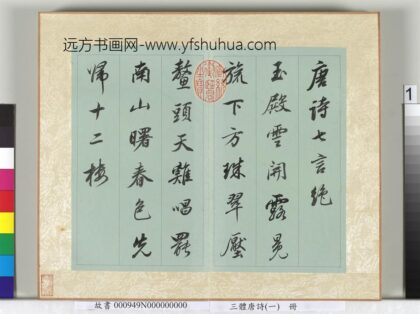 远方书画网-www.yfshuhua.com
唐詩七言絕
玉殿雲開露冕
旒下方珠翠壓
鰲頭天雞唱罷
南山曙春色先
歸十二樓
1
故書 000949N000000000 三體唐詩(一) 冊